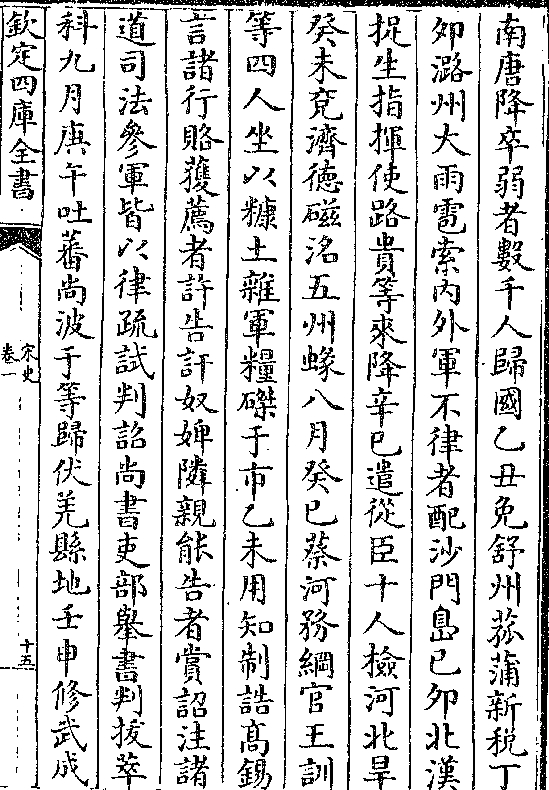 南唐降卒弱者數千人歸國乙丑免舒州菰蒲新税丁
夘潞州大雨雹索内外軍不律者配沙門島已夘北漢
捉生指揮使路貴等來降辛已遣從臣十人檢河北旱
癸未兗濟徳磁洺五州蝝八月癸巳蔡河務綱官王訓
等四人坐以糠土雜軍糧磔于市乙未用知制誥髙錫
言諸行賂獲薦者許告訐奴婢隣親能告者賞詔注諸
道司法參軍皆以律疏試判詔尚書吏部舉書判拔萃
科九月庚午吐蕃尚波于等歸伏羌縣地壬申修武成
欽定四庫全書
宋史
卷一
十五